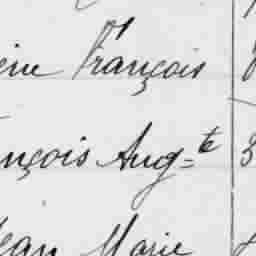 François
nçois Aug=te
Jean Marie